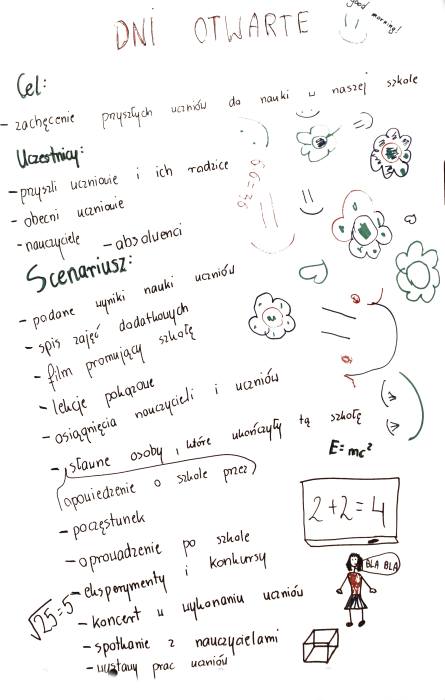 DNI OTWARTE
good morning!
Cel:
- zachęcenie przyszłych uczniów do nauki w naszej szkole
Uczestnicy:
- przyszli uczniowie i ich rodzice
- obecni uczniowie
- nauczyciele - absolwenci
Scenariusz:
- podane wyniki nauki uczniów
- spis zajęć dodatkowych
- film promujący szkołę
- lekcje pokazowe
- osiągnięcia nauczycieli i uczniów
- sławne osoby, które ukończyły tą szkołę
E=mc²
(opowiedzenie o szkole przez)
2+2=4
- poczęstunek
- oprowadzenie po szkole
BLA BLA
- eksperymenty i konkursy
√25=5
- koncert w wykonaniu uczniów
- spotkanie z nauczycielami
- wystawy prac uczniów